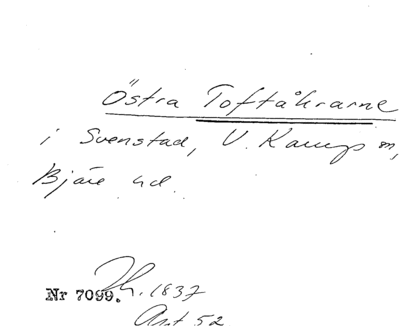 Östra Toftåkrarne
i Svenstad, V. Karups sn,
Bjäre hd.
Nr 7099. Lh. 1837
Akt 52